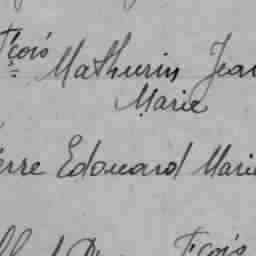 Fçois Mathurin Jean
Marie
erre Edouard Marie
Fçois